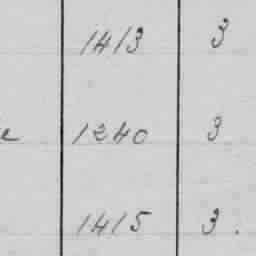 1413 3
1240 3
1415 3.